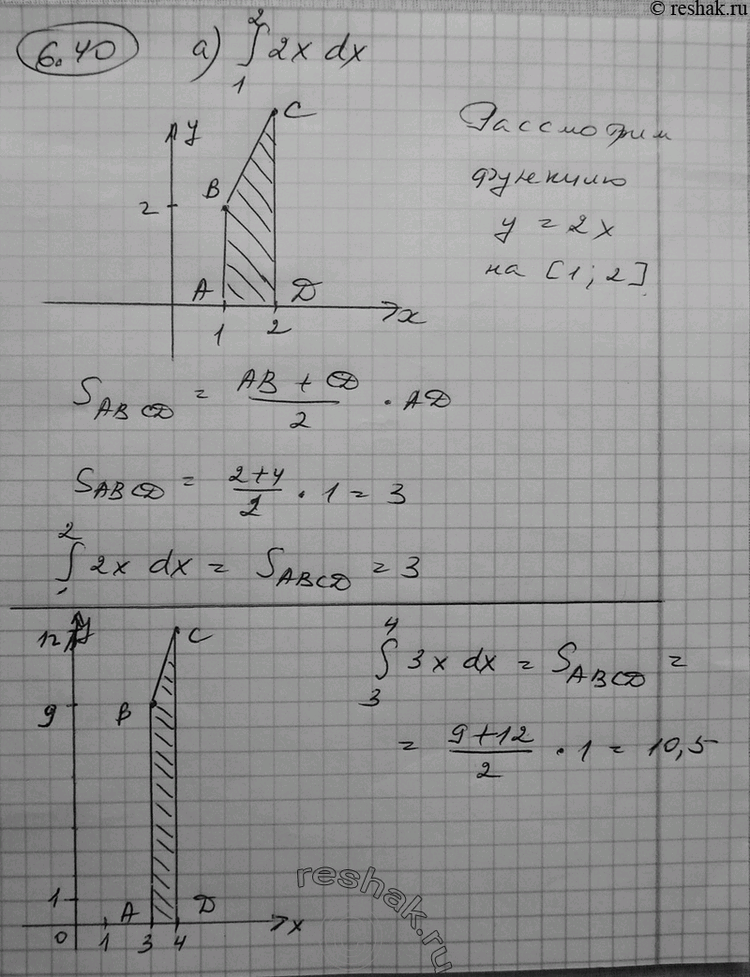 © reshak.ru
6.40 а) ∫₁² 2x dx
y
C
B
2
A
D
1 2 x
Рассмотрим
функцию
y = 2x
на [1; 2].
S_ABCD = (AB + CD)/2 · AD
S_ABCD = (2+4)/2 · 1 = 3
∫₁² 2x dx = S_ABCD = 3
12 y C
9 B
1 A D
0 1 3 4 x
∫₃⁴ 3x dx = S_ABCD =
= (9+12)/2 · 1 = 10,5
reshak.ru